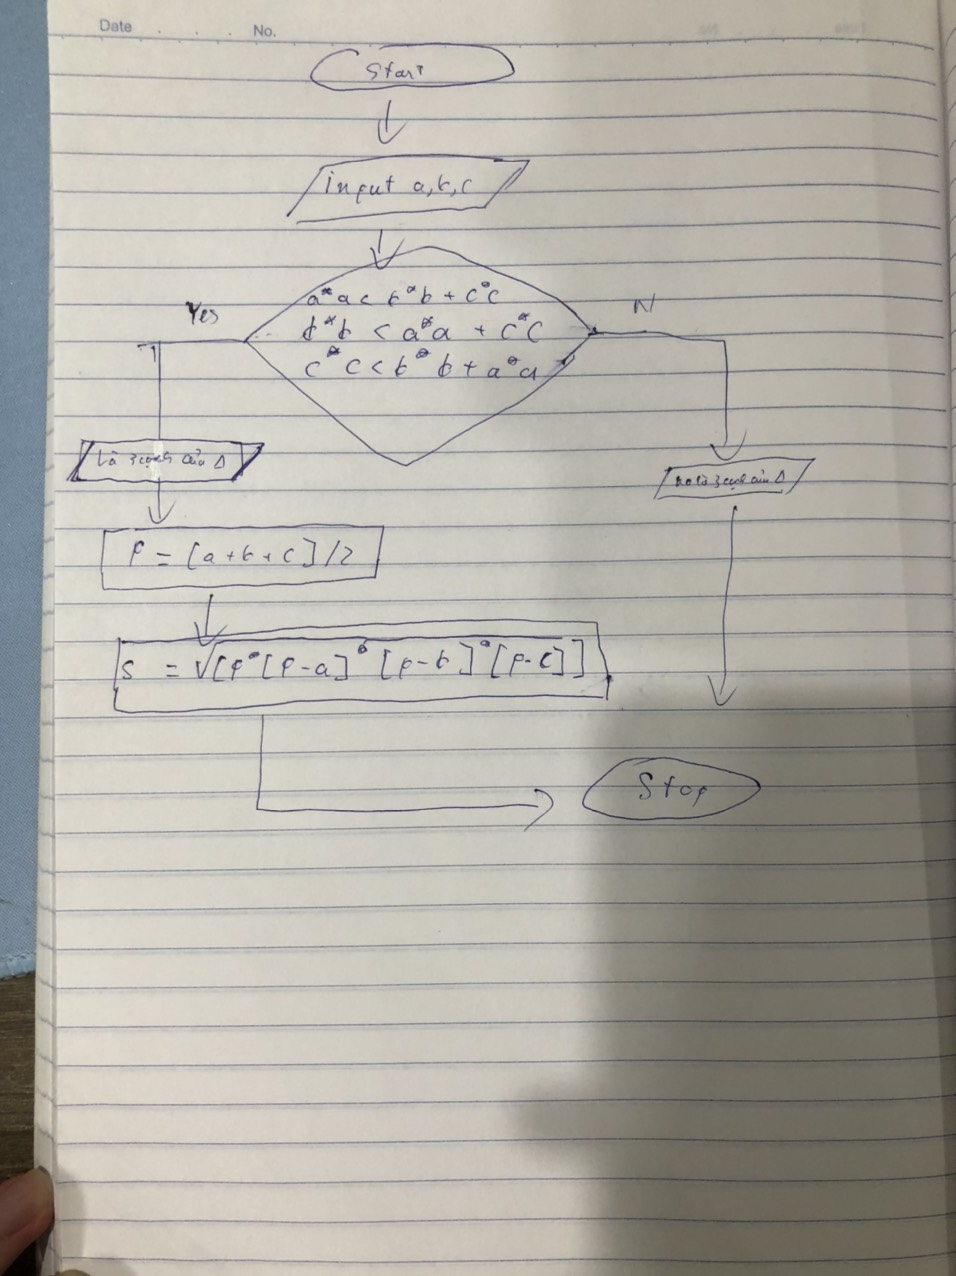 Date No.
Start
input a,b,c
a*a < b*b + c*c
b*b < a*a + c*c
c*c < b*b + a*a
Yes
N
là 3 cạnh của Δ
ko là 3 cạnh của Δ
P = [a+b+c]/2
S = √[p*[p-a]*[p-b]*[p-c]]
Stop